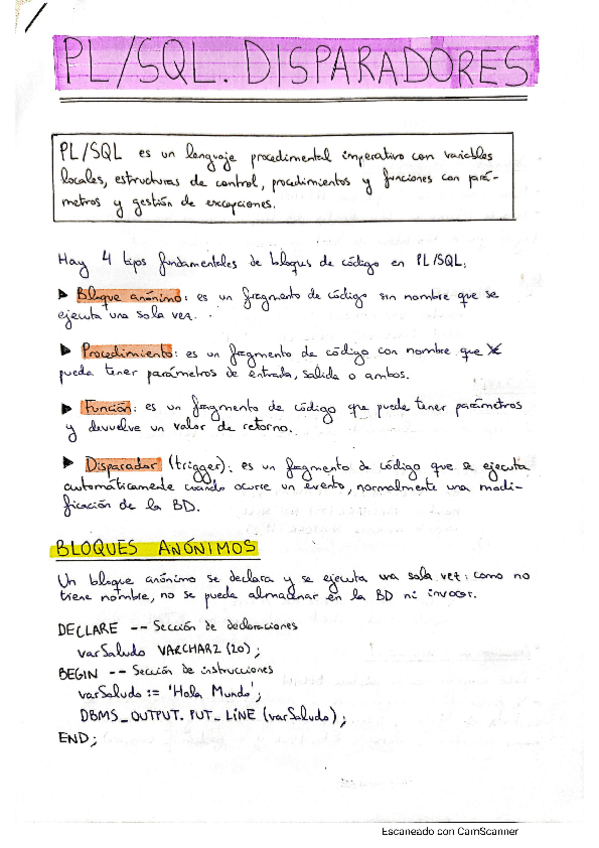 PL/SQL. DISPARADORES
PL/SQL es un lenguaje procedimental imperativo con variables
locales, estructuras de control, procedimientos y funciones con pará-
metros y gestión de excepciones.
Hay 4 tipos fundamentales de bloques de código en PL/SQL:
► Bloque anónimo: es un fragmento de código sin nombre que se
ejecuta una sola vez.
► Procedimiento: es un fragmento de código con nombre que
pueda tener parámetros de entrada, salida o ambos.
► Función: es un fragmento de código que puede tener parámetros
y devuelve un valor de retorno.
► Disparador (trigger): es un fragmento de código que se ejecuta
automáticamente cuando ocurre un evento, normalmente una modi-
ficación de la BD.
BLOQUES ANÓNIMOS
Un bloque anónimo se declara y se ejecuta una sola vez: como no
tiene nombre, no se puede almacenar en la BD ni invocar.
DECLARE -- Sección de declaraciones
varSaludo VARCHAR2 (20);
BEGIN -- Sección de instrucciones
varSaludo := 'Hola Mundo';
DBMS_OUTPUT. PUT_LINE (varSaludo);
END;
Escaneado con CamScanner